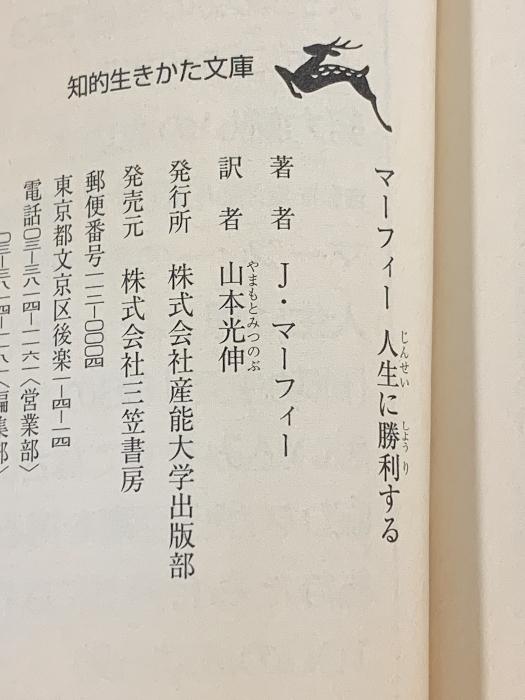 知的生きかた文庫
マーフィー 人生に勝利する
じんせい
しょうり
著者 J・マーフィー
訳者 山本光伸
やまもとみつのぶ
発行所 株式会社産能大学出版部
発売元 株式会社三笠書房
郵便番号一一二-〇〇〇四
東京都文京区後楽一-四-一四
電話〇三-三八一四-一一六一〈営業部〉
〇三-三八一四-一一八一〈編集部〉